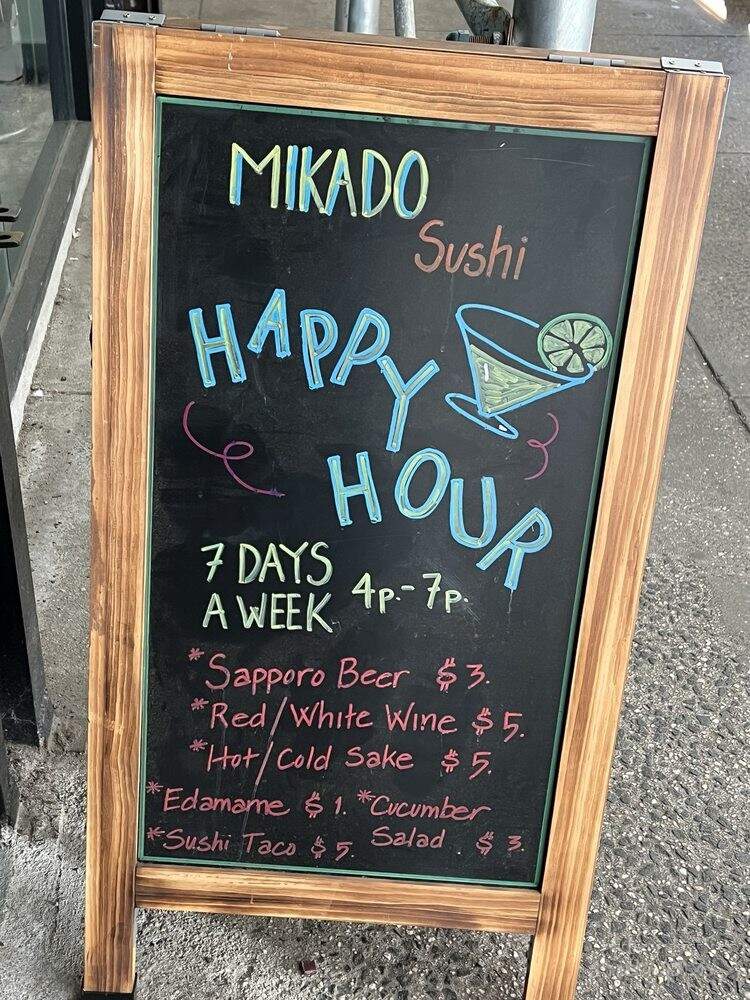 MIKADO
Sushi
HAPPY
HOUR
7 DAYS
A WEEK 4p.-7p.
*Sapporo Beer $3.
*Red/White Wine $5.
*Hot/Cold Sake $5.
*Edamame $1. *Cucumber
*Sushi Taco $5. Salad $3.